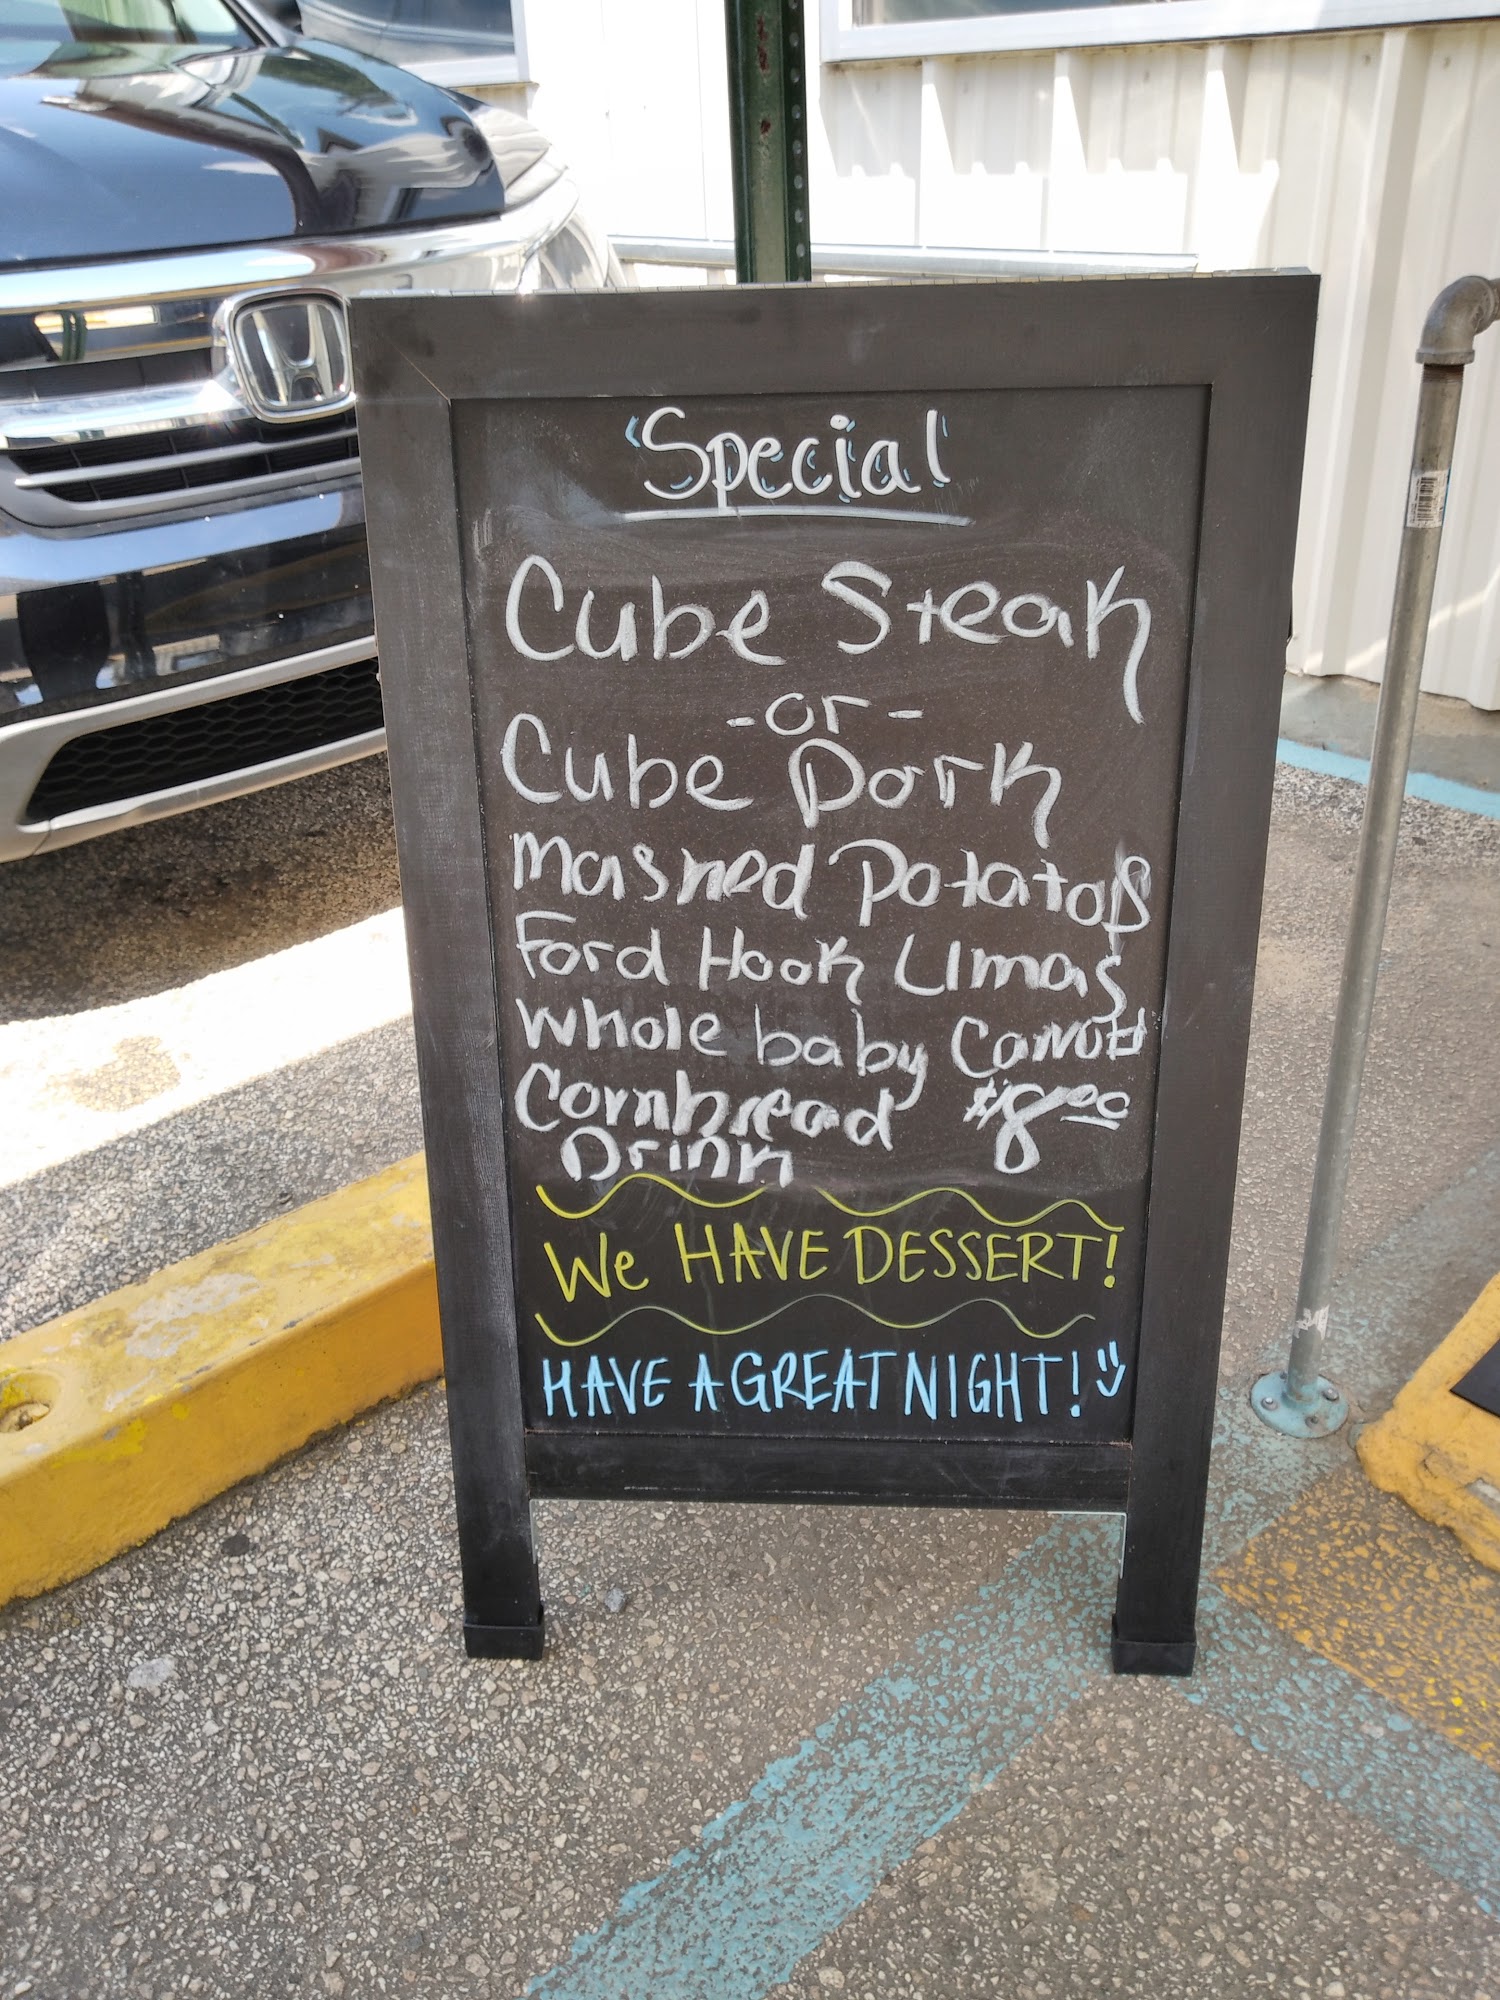 'Special'
Cube Steak
-or-
Cube Pork
Mashed Potatoes
Ford Hook Limas
Whole baby Carrots
Cornbread $8.00
Drink
We HAVE DESSERT!
HAVE A GREAT NIGHT!